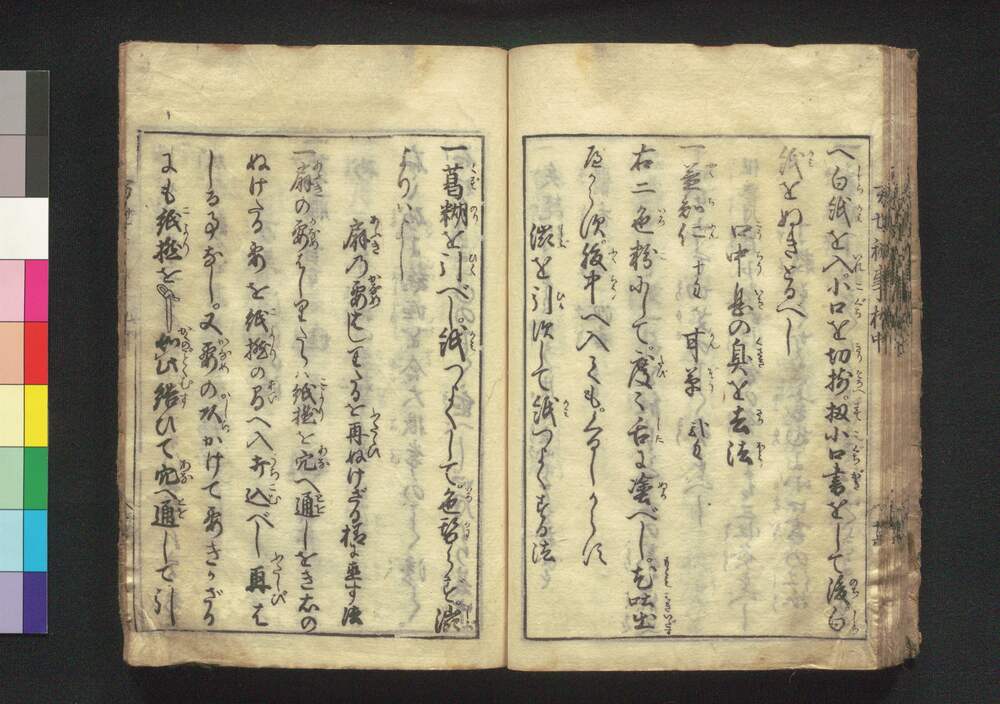 へ白紙を入。小口を切揃。扨小口書をして後白
紙をぬきとるべし
口中悪の臭を去法
一益智仁 十匁 甘草 弐匁
右二色粉にして。度〻舌に塗べし 吐出
べからず。後中へ入ても。くるしからず
渋を引ずして紙つよくする法
一葛糊を引べし。紙つよくして色替らず渋
よりハよし
扇乃要はしりたるを再ぬけざる様に直す法
一扇の要はしりたらバ紙捻を穴へ通しをき右の
ぬけたる要を紙捻の間へ入打込べし再は
しる事なし。又要の頭かけて要きかざる
にも紙捻を 如此結びて穴へ通して引